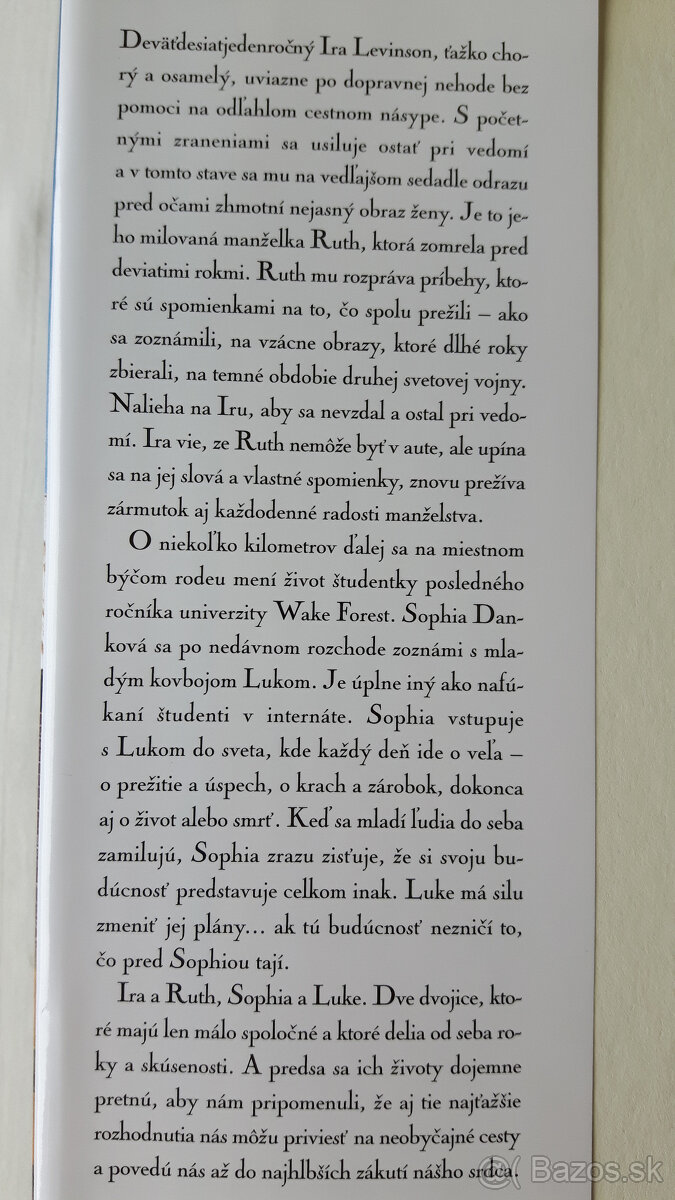 Deväťdesiatjedenročný Ira Levinson, ťažko cho-
rý a osamelý, uviazne po dopravnej nehode bez
pomoci na odľahlom cestnom násype. S počet-
nými zraneniami sa usiluje ostať pri vedomí
a v tomto stave sa mu na vedľajšom sedadle odrazu
pred očami zhmotní nejasný obraz ženy. Je to je-
ho milovaná manželka Ruth, ktorá zomrela pred
deviatimi rokmi. Ruth mu rozpráva príbehy, kto-
ré sú spomienkami na to, čo spolu prežili – ako
sa zoznámili, na vzácne obrazy, ktoré dlhé roky
zbierali, na temné obdobie druhej svetovej vojny.
Nalieha na Iru, aby sa nevzdal a ostal pri vedo-
mí. Ira vie, ze Ruth nemôže byť v aute, ale upína
sa na jej slová a vlastné spomienky, znovu prežíva
zármutok aj každodenné radosti manželstva.
O niekoľko kilometrov ďalej sa na miestnom
býčom rodeu mení život študentky posledného
ročníka univerzity Wake Forest. Sophia Dan-
ková sa po nedávnom rozchode zoznámi s mla-
dým kovbojom Lukom. Je úplne iný ako nafú-
kaní študenti v internáte. Sophia vstupuje
s Lukom do sveta, kde každý deň ide o veľa –
o prežitie a úspech, o krach a zárobok, dokonca
aj o život alebo smrť. Keď sa mladí ľudia do seba
zamilujú, Sophia zrazu zisťuje, že si svoju bu-
dúcnosť predstavuje celkom inak. Luke má silu
zmeniť jej plány... ak tú budúcnosť nezničí to,
čo pred Sophiou tají.
Ira a Ruth, Sophia a Luke. Dve dvojice, kto-
ré majú len málo spoločné a ktoré delia od seba ro-
ky a skúsenosti. A predsa sa ich životy dojemne
pretnú, aby nám pripomenuli, že aj tie najťažšie
rozhodnutia nás môžu priviesť na neobyčajné cesty
a povedú nás až do najhlbších zákutí nášho srdca.
Bazos.sk